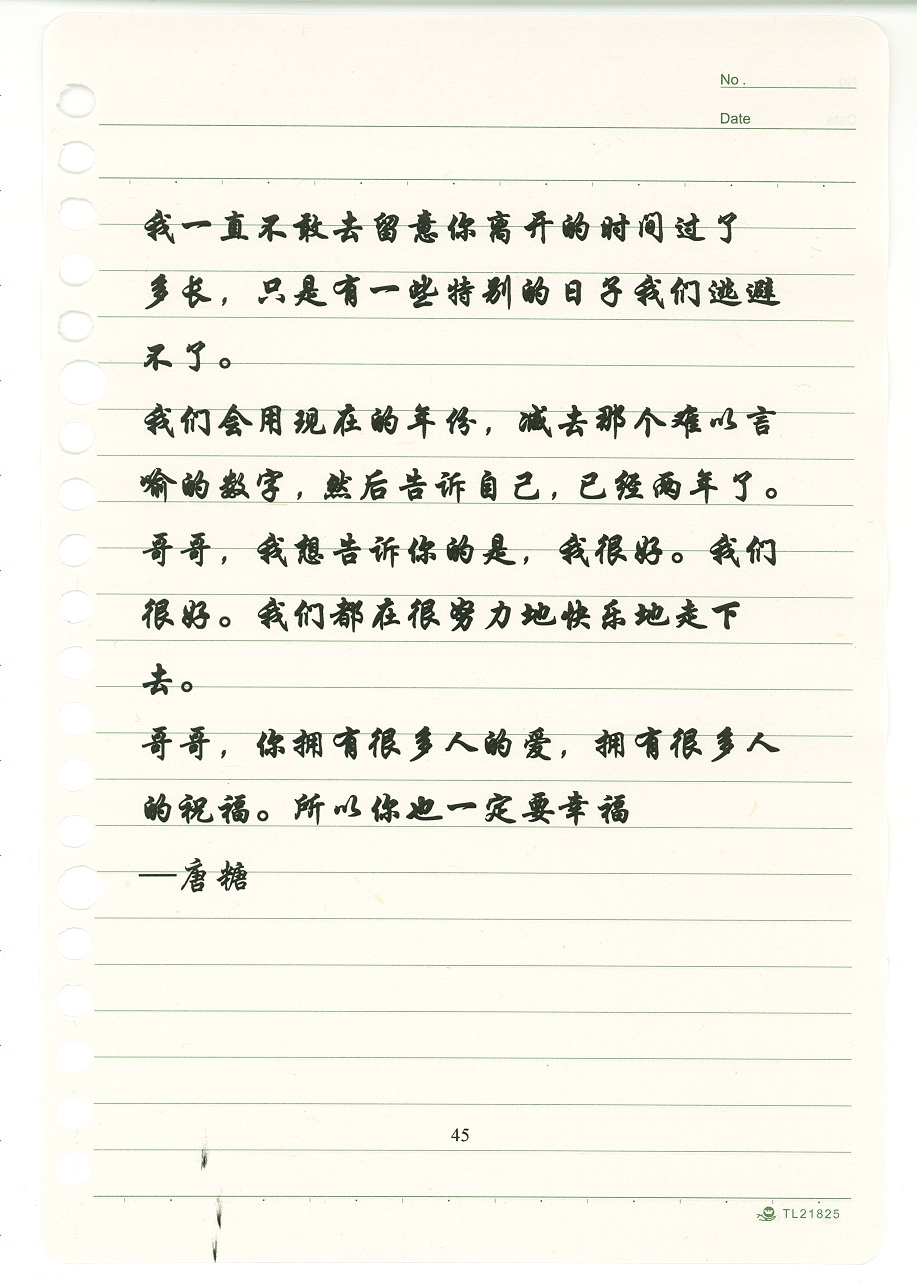 No.
Date
我一直不敢去留意你离开的时间过了
多长，只是有一些特别的日子我们逃避
不了。
我们会用现在的年份，减去那个难以言
喻的数字，然后告诉自己，已经两年了。
哥哥，我想告诉你的是，我很好。我们
很好。我们都在很努力地快乐地走下
去。
哥哥，你拥有很多人的爱，拥有很多人
的祝福。所以你也一定要幸福
—唐糖
45
TL21825